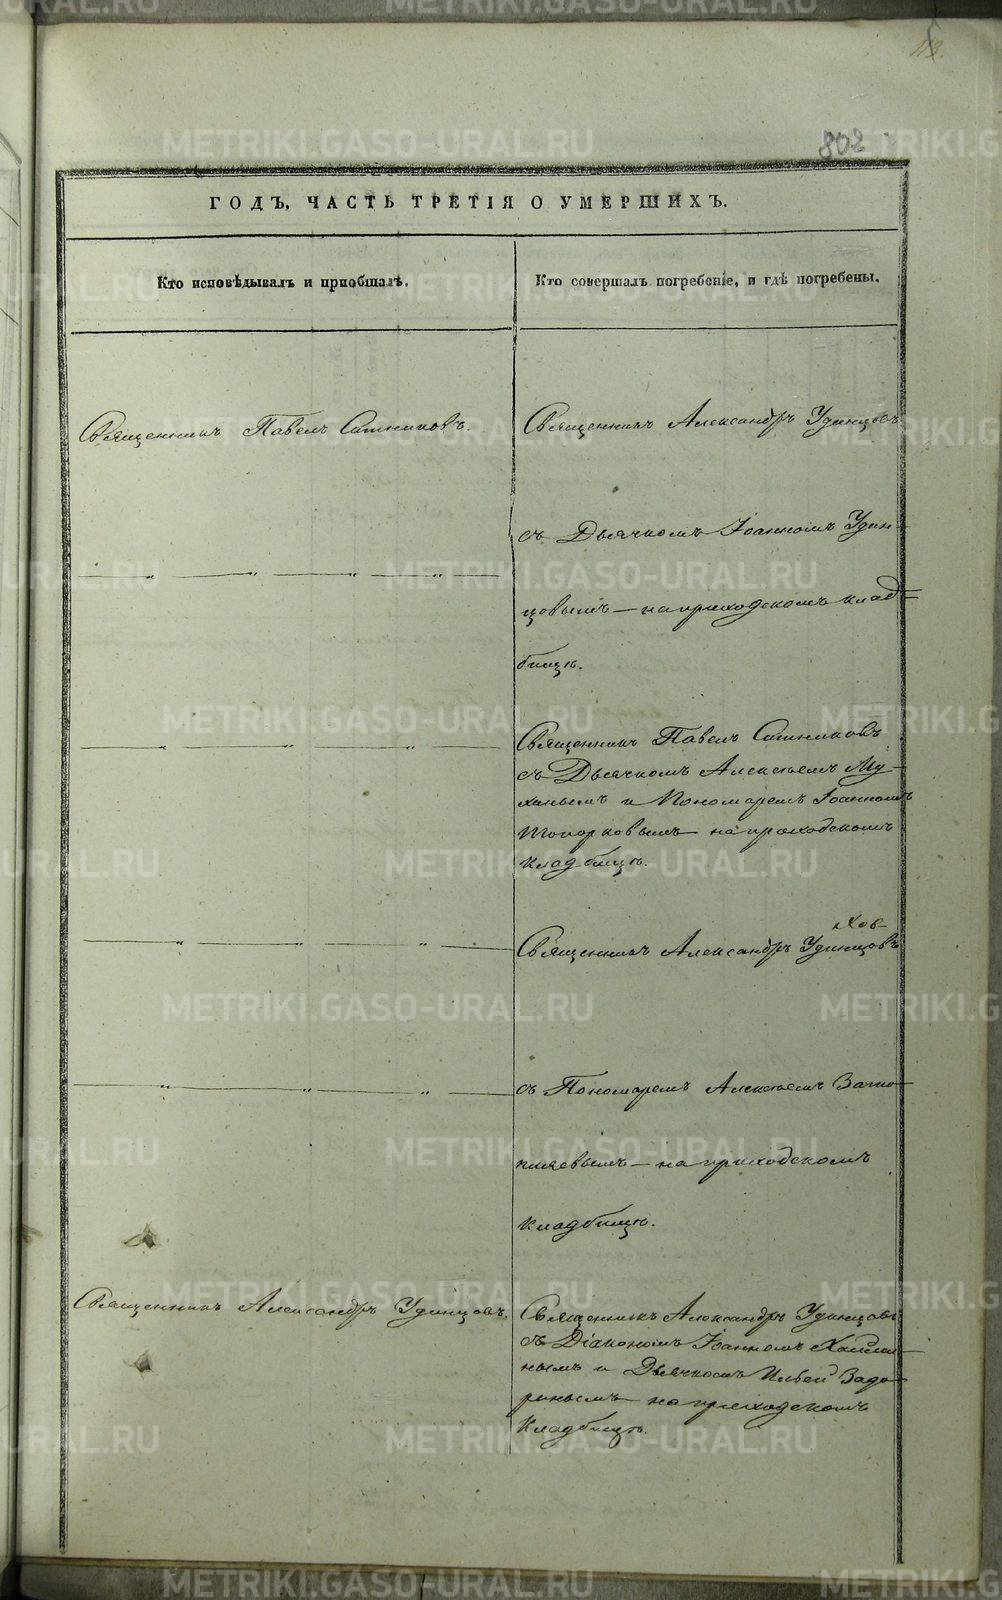 113.
802
ГОДЪ, ЧАСТЬ ТРЕТІЯ О УМЕРШИХЪ.
Кто исповѣдывалъ и пріобщалъ.
Кто совершалъ погребеніе, и гдѣ погребены.
Священникъ Павелъ Ситниковъ.
Священникъ Александръ Удинцовъ
съ Дьячкомъ Іоанномъ Удин-
цовымъ — на приходскомъ клад-
бищѣ.
Священникъ Павелъ Ситниковъ
съ Дьячкомъ Алексѣемъ Му-
хинымъ и Пономаремъ Іоанномъ
Топорковымъ на приходскомъ
кладбищѣ.
Священникъ Александръ Удинцовъ
съ Пономаремъ Алексѣемъ
на приходскомъ
кладбищѣ.
Священникъ Александръ Удинцовъ.
Священникъ Александръ Удинцовъ
съ Діакономъ Іоанномъ
нымъ и Дьячкомъ Ильей Задо-
ринымъ на приходскомъ
кладбищѣ.
METRIKI.GASO-URAL.RU